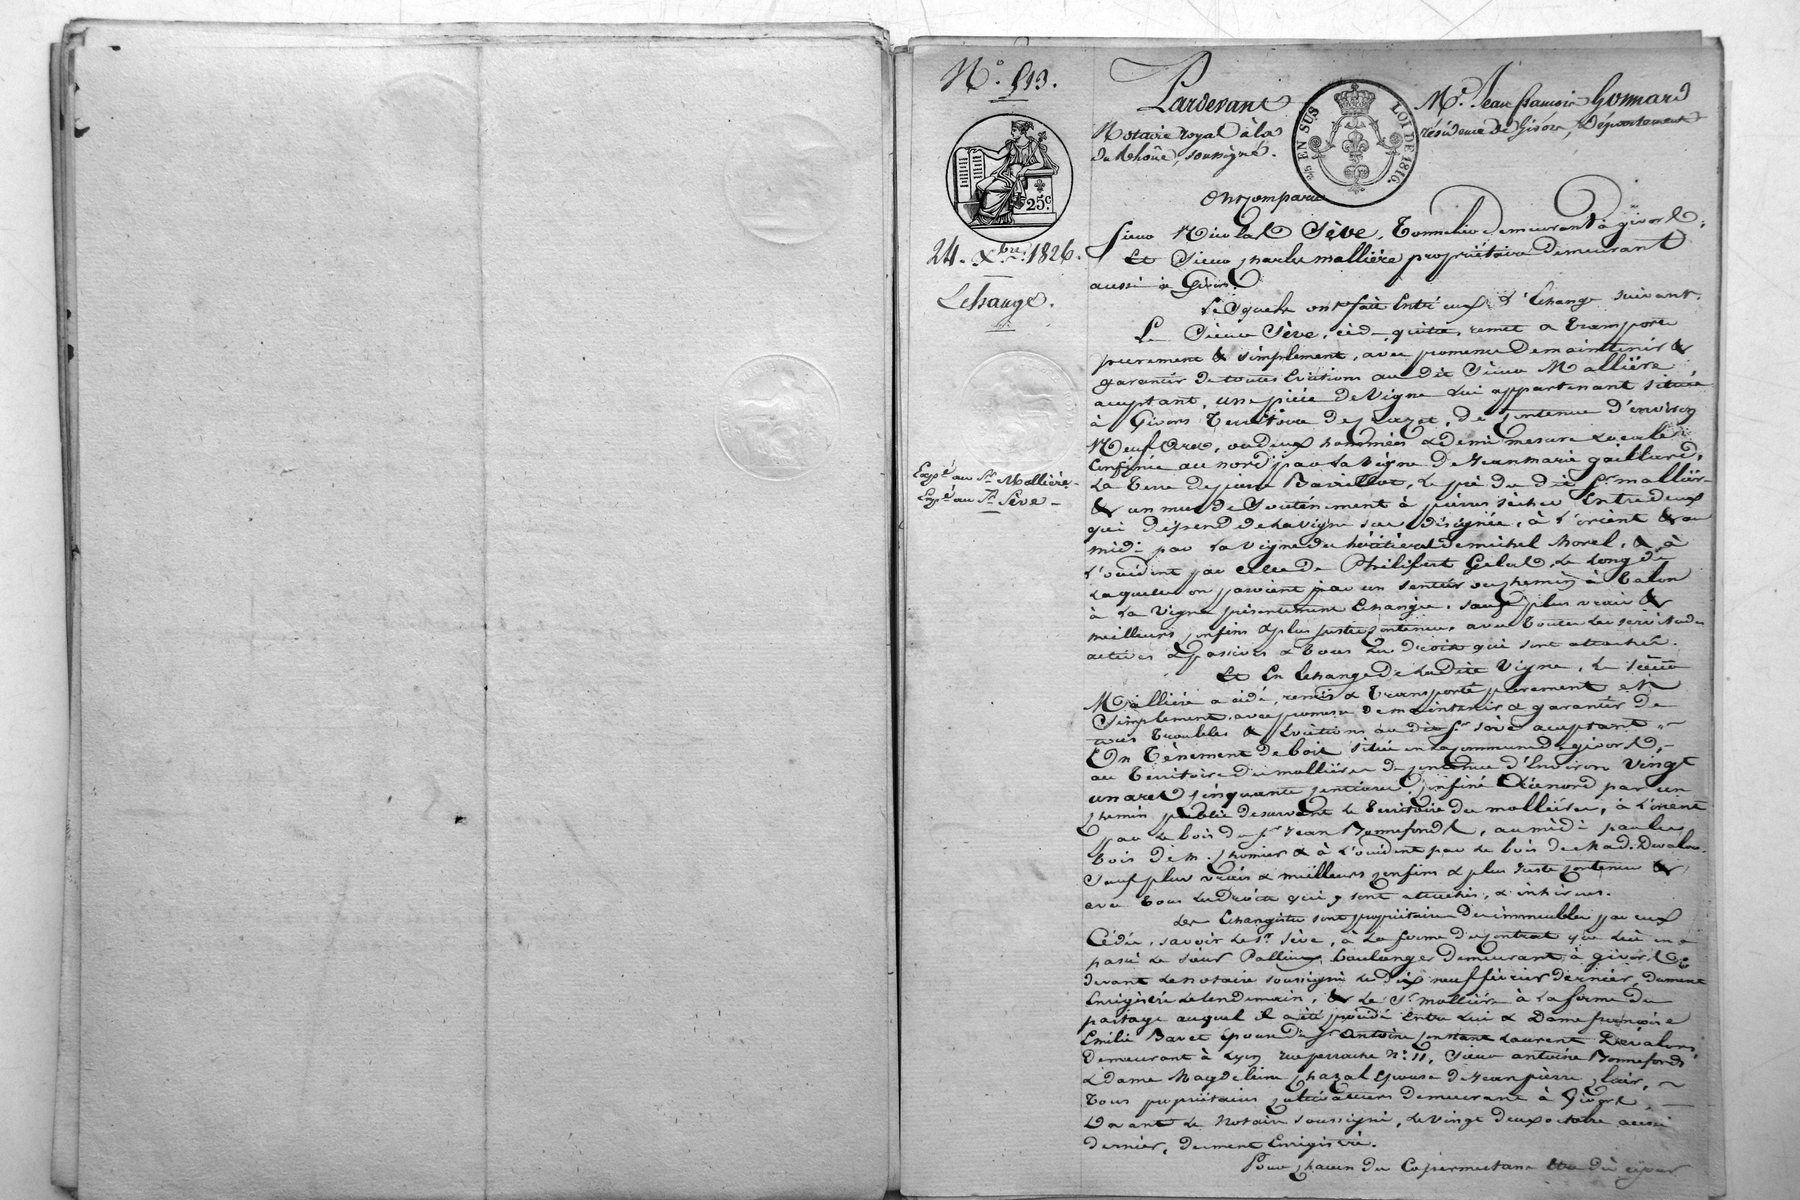 N.° 513.
25.c
24. Xbre 1826.
Echange.
Expé. au Sr. Mollière
Expé au Sr. Sève
Pardevant Me. Jean françois Gonnard
EN SUS
LOI DE 1816.
Notaire royal à la résidence de Givors, Département
du Rhône, soussigné.
Ont comparu
Sieur Nicolas Sève, Tonnelier demeurant à givors,
Et Sieur charles mollière propriétaire demeurant
aussi à Givors.
Lesquels ont fait entr'eux l'Echange suivant.
Le Sieur Sève, cède, quitte, remet & transporte
purement & simplement, avec promesse de maintenir &
garantir de toutes Evictions au dit Sieur Mollière
acceptant, une pièce de Vigne lui appartenant située
à Givors Territoire de, de contenue d'environ
Neuf ares, ou deux hommées & demi mesure locale
Confinée au nord par la Vigne de Jean marie gaillard,
la Terre de pierre, le pré du dit Sr mollière
& un mur de Soutènement à pierres sèches Entredeux
qui dépend de la vigne sus désignée, à l'orient & au
midi par la vigne des héritiers de michel Morel, & à
l'occident par celle de Philibert, le long de
laquelle on parvient par un sentier ou chemin à talon
à la Vigne présentement Echangée, sauf plus vrais &
meilleurs confins & plus juste contenue, avec toutes les servitudes
actives & passives & tous les droits qui sont attachés.
Et En Echange de la dite Vigne, le sieur
Mollière a cédé, remis & transporté purement et
Simplement, avec promesse de maintenir & garantir de
tous Troubles & Evictions au dit Sr. sève acceptant
Un Tènement de bois situé en la commune de givors,
au Territoire des mollières de contenue d'Environ Vingt
un ares cinquante centiares, confiné au nord par un
chemin public desservant le Territoire des mollières, à l'orient
par le bois du Sr. Jean Bonnefond, au midi par les
bois de m. & à l'occident par le bois de Mad. Devalors
Sauf plus vrais & meilleurs confins & plus juste contenue &
avec tous les Droits qui y sont attachés, & inhérens.
Les Echangistes sont propriétaires des immeubles par eux
Cédés, savoir le Sr. Sève, à la forme du contrat que lui en a
passé le sieur, boulanger demeurant à givors,
devant le notaire soussigné le Dix neuf février dernier, dument
Enregistré le lendemain, & le Sr. mollière à la forme du
partage auquel il a été procédé Entre lui & Dame françoise
Emilie épouse de Sr antoine constant Laurent Devalors
Demeurant à Lyon rue perrache N.° 11, Sieur antoine Bonnefond
& dame Magdeleine chazal Epouse de Jean pierre,
Tous propriétaires cultivateurs demeurant à Givors,
Devant le Notaire soussigné, le vingt deux octobre aussi
dernier, dument Enregistré.
Pour chacun des Copermutans